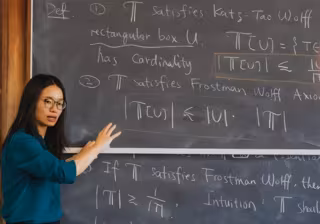 Def. ① 𝕋 satisfies Katz-Tao Wolff
rectangular box U.
𝕋[U] = {T ∈
has Cardinality
|𝕋[U]| ≲
② 𝕋 satisfies Frostman Wolff Axio
|𝕋[U]| ≲ |U| · |𝕋|
If 𝕋 satisfies Frostman Wolff, the
|𝕋| ≳
Intuition: 𝕋 shou